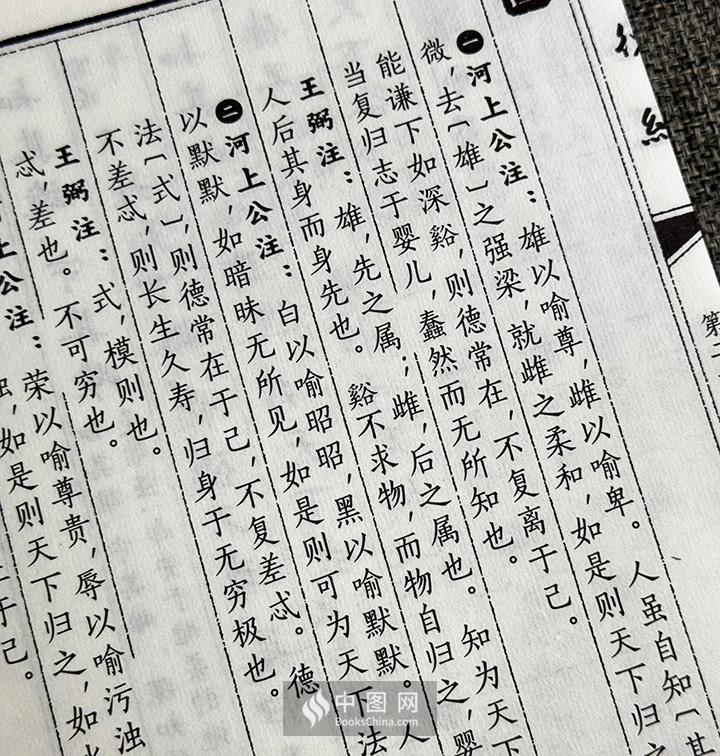 經
第二
㊀河上公注：雄以喻尊，雌以喻卑。人虽自知〔其
微，去〔雄〕之强梁，就雌之柔和，如是则天下归之
能谦下如深谿，则德常在，不复离于己。
当复归志于婴儿，蠢然而无所知也。
王弼注：雄，先之属；雌，后之属也。知为天下
人后其身而身先也。谿不求物，而物自归之，婴
㊁河上公注：白以喻昭昭，黑以喻默默。人
以默默，如暗昧无所见，如是则可为天下法
法〔式〕，则德常在于己，不复差忒。德
不差忒，则长生久寿，归身于无穷极也。
王弼注：式，模则也。
忒，差也。不可穷也。
上公注：荣以喻尊贵，辱以喻污浊
浊，如是则天下归之，如水
于己。
中图网
BooksChina.com